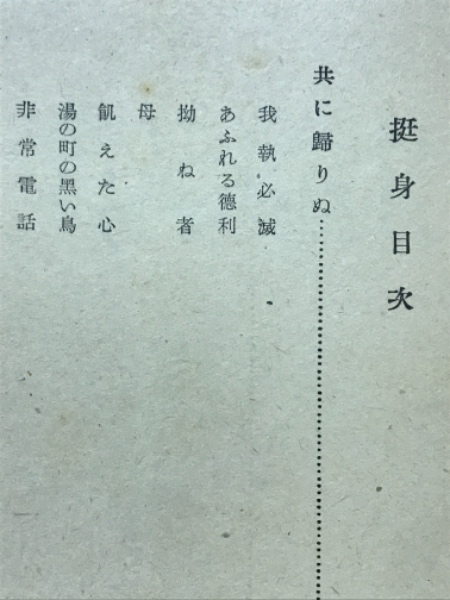 挺身目次
共に歸りぬ……………………………
我執必滅
あふれる德利
拗ね者
母
飢えた心
湯の町の黒い鳥
非常電話